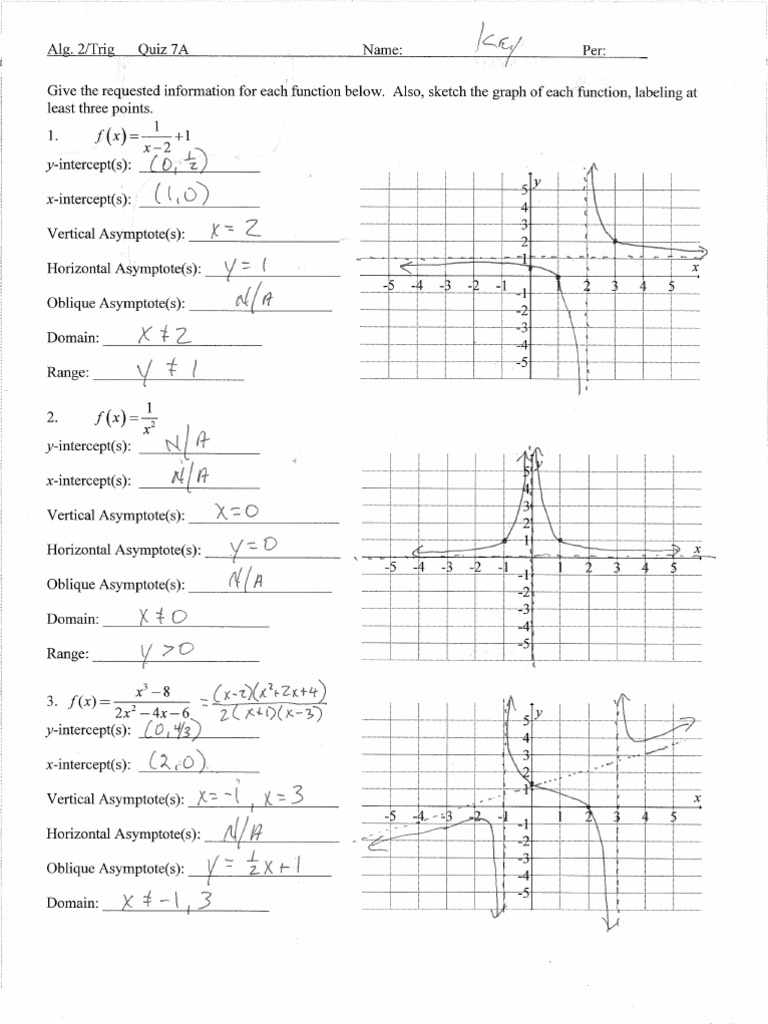 Alg. 2/Trig Quiz 7A Name: Key Per:
Give the requested information for each function below. Also, sketch the graph of each function, labeling at
least three points.
1. f(x) = 1/(x−2) + 1
y-intercept(s): (0, 1/2)
x-intercept(s): (1,0)
Vertical Asymptote(s): x = 2
Horizontal Asymptote(s): y = 1
Oblique Asymptote(s): N/A
Domain: x ≠ 2
Range: y ≠ 1
y
5
4
3
2
1
x
-5 -4 -3 -2 -1 1 2 3 4 5
-1
-2
-3
-4
-5
2. f(x) = 1/x²
y-intercept(s): N/A
x-intercept(s): N/A
Vertical Asymptote(s): x=0
Horizontal Asymptote(s): y=0
Oblique Asymptote(s): N/A
Domain: x ≠ 0
Range: y > 0
y
5
4
3
2
1
x
-5 -4 -3 -2 -1 1 2 3 4 5
-1
-2
-3
-4
-5
3. f(x) = (x³−8)/(2x²−4x−6) = (x-2)(x²+2x+4)/2(x+1)(x-3)
y-intercept(s): (0, 4/3)
x-intercept(s): (2,0)
Vertical Asymptote(s): x=-1, x=3
Horizontal Asymptote(s): N/A
Oblique Asymptote(s): y = 1/2x+1
Domain: x ≠ -1, 3
y
5
4
3
2
1
x
-5 -4 -3 -2 -1 1 2 3 4 5
-1
-2
-3
-4
-5